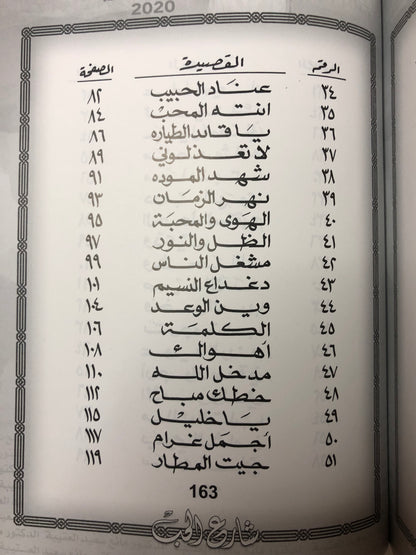 2020
الرقم القصيدة الصفحة
٣٤ عناد الحبيب ٨٢
٣٥ انته المحب ٨٤
٣٦ يا قائد الطياره ٨٦
٣٧ لا تعذلوني ٨٩
٣٨ شهد الموده ٩١
٣٩ نهر الزمان ٩٣
٤٠ الهوى والمحبة ٩٥
٤١ الظل والنور ٩٧
٤٢ مشغل الناس ٩٩
٤٣ دغداع النسيم ١٠١
٤٤ وين الوعد ١٠٤
٤٥ الكلمة ١٠٦
٤٦ اهواك ١٠٨
٤٧ مدخل الله ١١٠
٤٨ خطك مباح ١١٢
٤٩ يا خليل ١١٥
٥٠ أجمل غرام ١١٧
٥١ جيت المطار ١١٩
163
شارع الحب